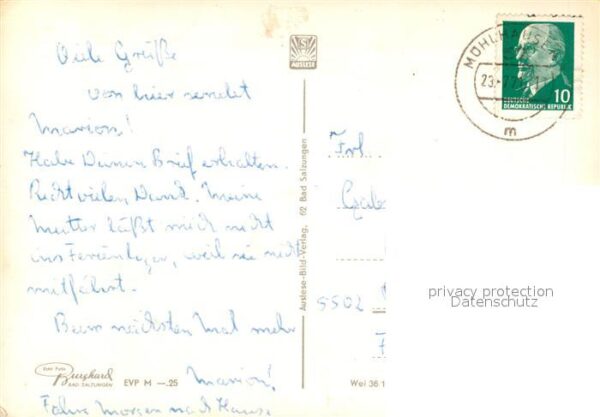 Viele Grüße
von hier sendet
Marion!
Habe Deinen Brief erhalten.
Recht vielen Dank. Meine
Mutter läßt mich nicht
ins Ferienlager, weil sie nicht
mitfährt.
Beim nächsten Mal mehr
Marion!
Fahre Morgen nach Hause
AUSLESE
Auslese-Bild-Verlag, 62 Bad Salzungen
Echt Foto
Burghard
BAD SALZUNGEN
EVP M —.25
Wei 36 1
MÜHLHAUSE
23.-7.7
m
10
DEUTSCHE
DEMOKRATISCHE REPUBLIK
Frl
Gab
5502
privacy protection
Datenschutz